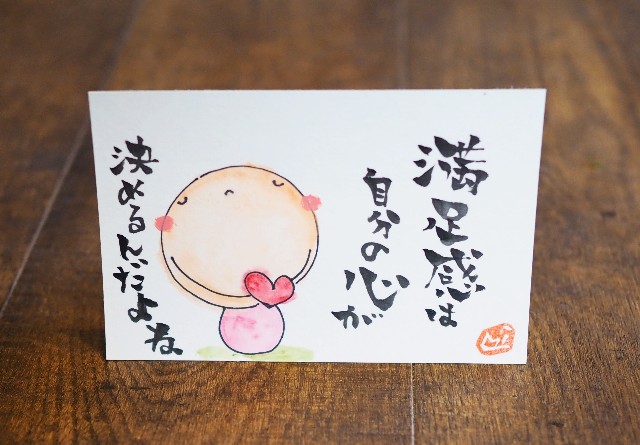 満足感は
自分の心が
決めるんだよね